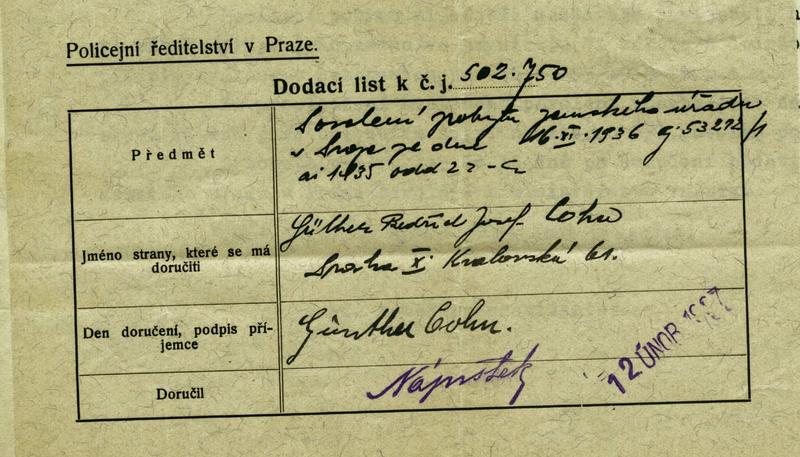 Policejní ředitelství v Praze.
Dodací list k č. j. 502.750
Předmět
pobytu zemského úřadu
v ze dne 16.XI.1936 čj 53292/
ai 1935 odd 22 -
Jméno strany, které se má
doručiti
Günther Bedřich Josef Cohn
Praha X. Kralovská 61.
Den doručení, podpis pří-
jemce
Günther Cohn.
12 ÚNOR 1937
Doručil
Náprstek